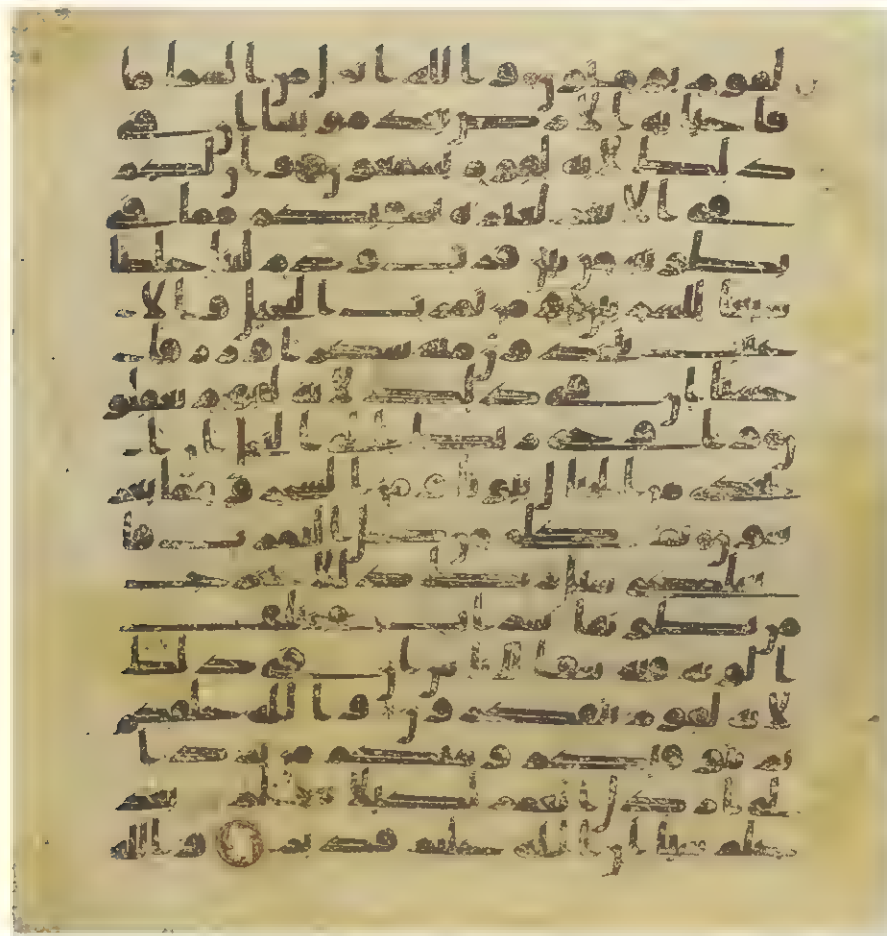 لقوم يومنون والله انزل من السما ما
فاحيا به الارض بعد موتها ان في
ذلك لاية لقوم يسمعون وان لكم
في الانعم لعبرة نسقيكم مما في
بطونه من بين فرث ودم لبنا خالصا
سىغا للشربين ومن ثمرت النخيل والا
عنب تتخذون منه سكرا ورزقا
حسنا ان في ذلك لاية لقوم يعقلو
ن واوحى ربك الى النحل ان ا
تخذي من الجبال بيوتا ومن الشجر ومما يعر
شون ثم كلي من كل الثمرت فا
سلكي سبل ربك ذللا يخرج
من بطونها شراب مختلف
الونه فيه شفا للناس ان في ذلك
لاية لقوم يتفكرون والله خلقكم
ثم يتوفيكم ومنكم من يرد ا
لى ارذل العمر لكيلا يعلم بعد
علم شيا ان الله عليم قدير والله